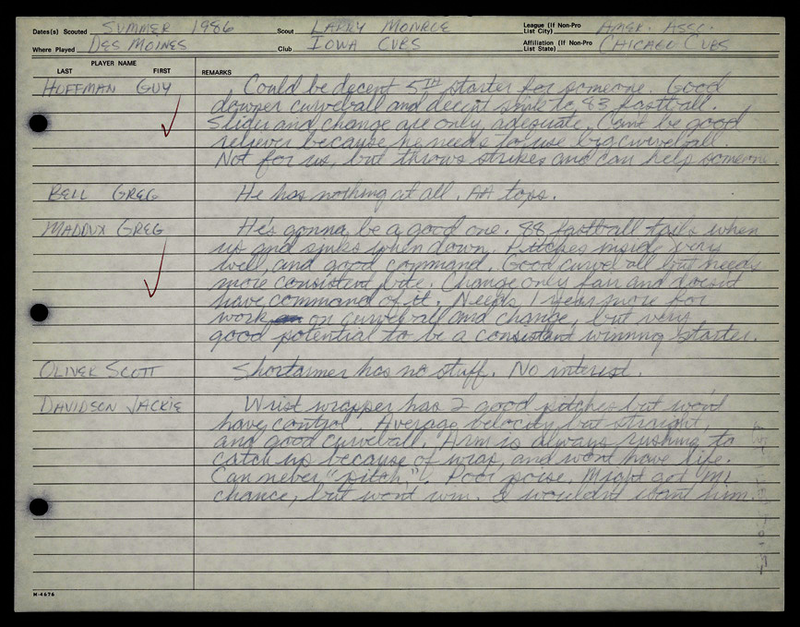 Dates(s) Scouted SUMMER 1986 Scout LARRY MONROE League (If Non-Pro List City) AMER. ASSC.
Where Played DES MOINES Club IOWA CUBS Affiliation (If Non-Pro List State) CHICAGO CUBS
PLAYER NAME
LAST FIRST REMARKS
HOFFMAN GUY Could be decent 5TH starter for someone. Good
downer curveball and decent sinile to 83 fastball.
Slider and change are only adequate. Can't be good
reliever because he needs to use big curveball.
Not for us, but throws strikes and can help someone.
BELL GREG He has nothing at all. AA tops.
MADDUX GREG He's gonna be a good one. 88 fastball tails when
up and sinks when down. Pitches inside very
well, and good command. Good curveball but needs
more consistent bite. Change only fair and doesn't
have command of it. Needs 1 year more for
work on curveball and change, but very
good potential to be a consistent winning starter.
OLIVER SCOTT Shortarmer has no stuff. No interest.
DAVIDSON JACKIE Wrist wrapper has 2 good pitches but won't
have control. Average velocity but straight,
and good curveball. Arm is always rushing to
catch up because of wrap, and won't have life.
Can never "pitch". Poor poise. Might get ML
chance, but won't win. I wouldn't want him.
M-4676